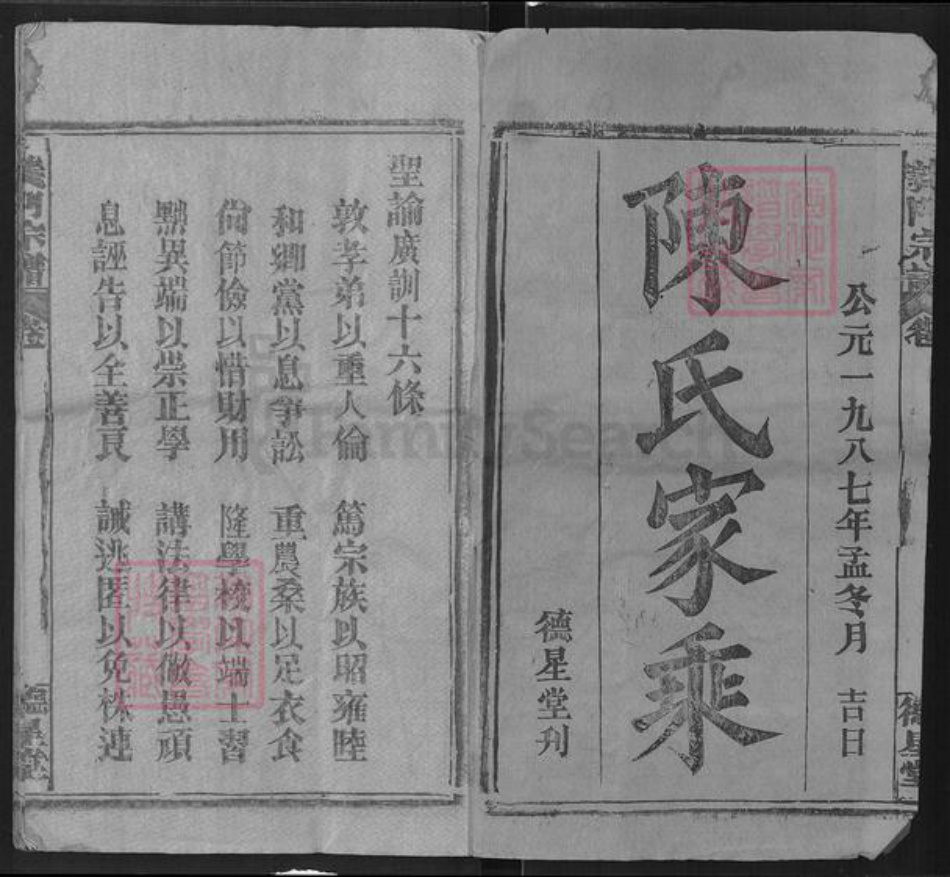 公元一九八七年孟冬月 吉日
陳氏家乘
德星堂刋
德星堂
聖諭廣訓十六條
敦孝弟以重人倫 篤宗族以昭雍睦
和鄉黨以息爭訟 重農桑以足衣食
尚節儉以惜財用 隆學校以端士習
黜異端以崇正學 講法律以儆愚頑
息誣告以全善良 誡逃匿以免株連
義門宗譜 卷
FamilySearch